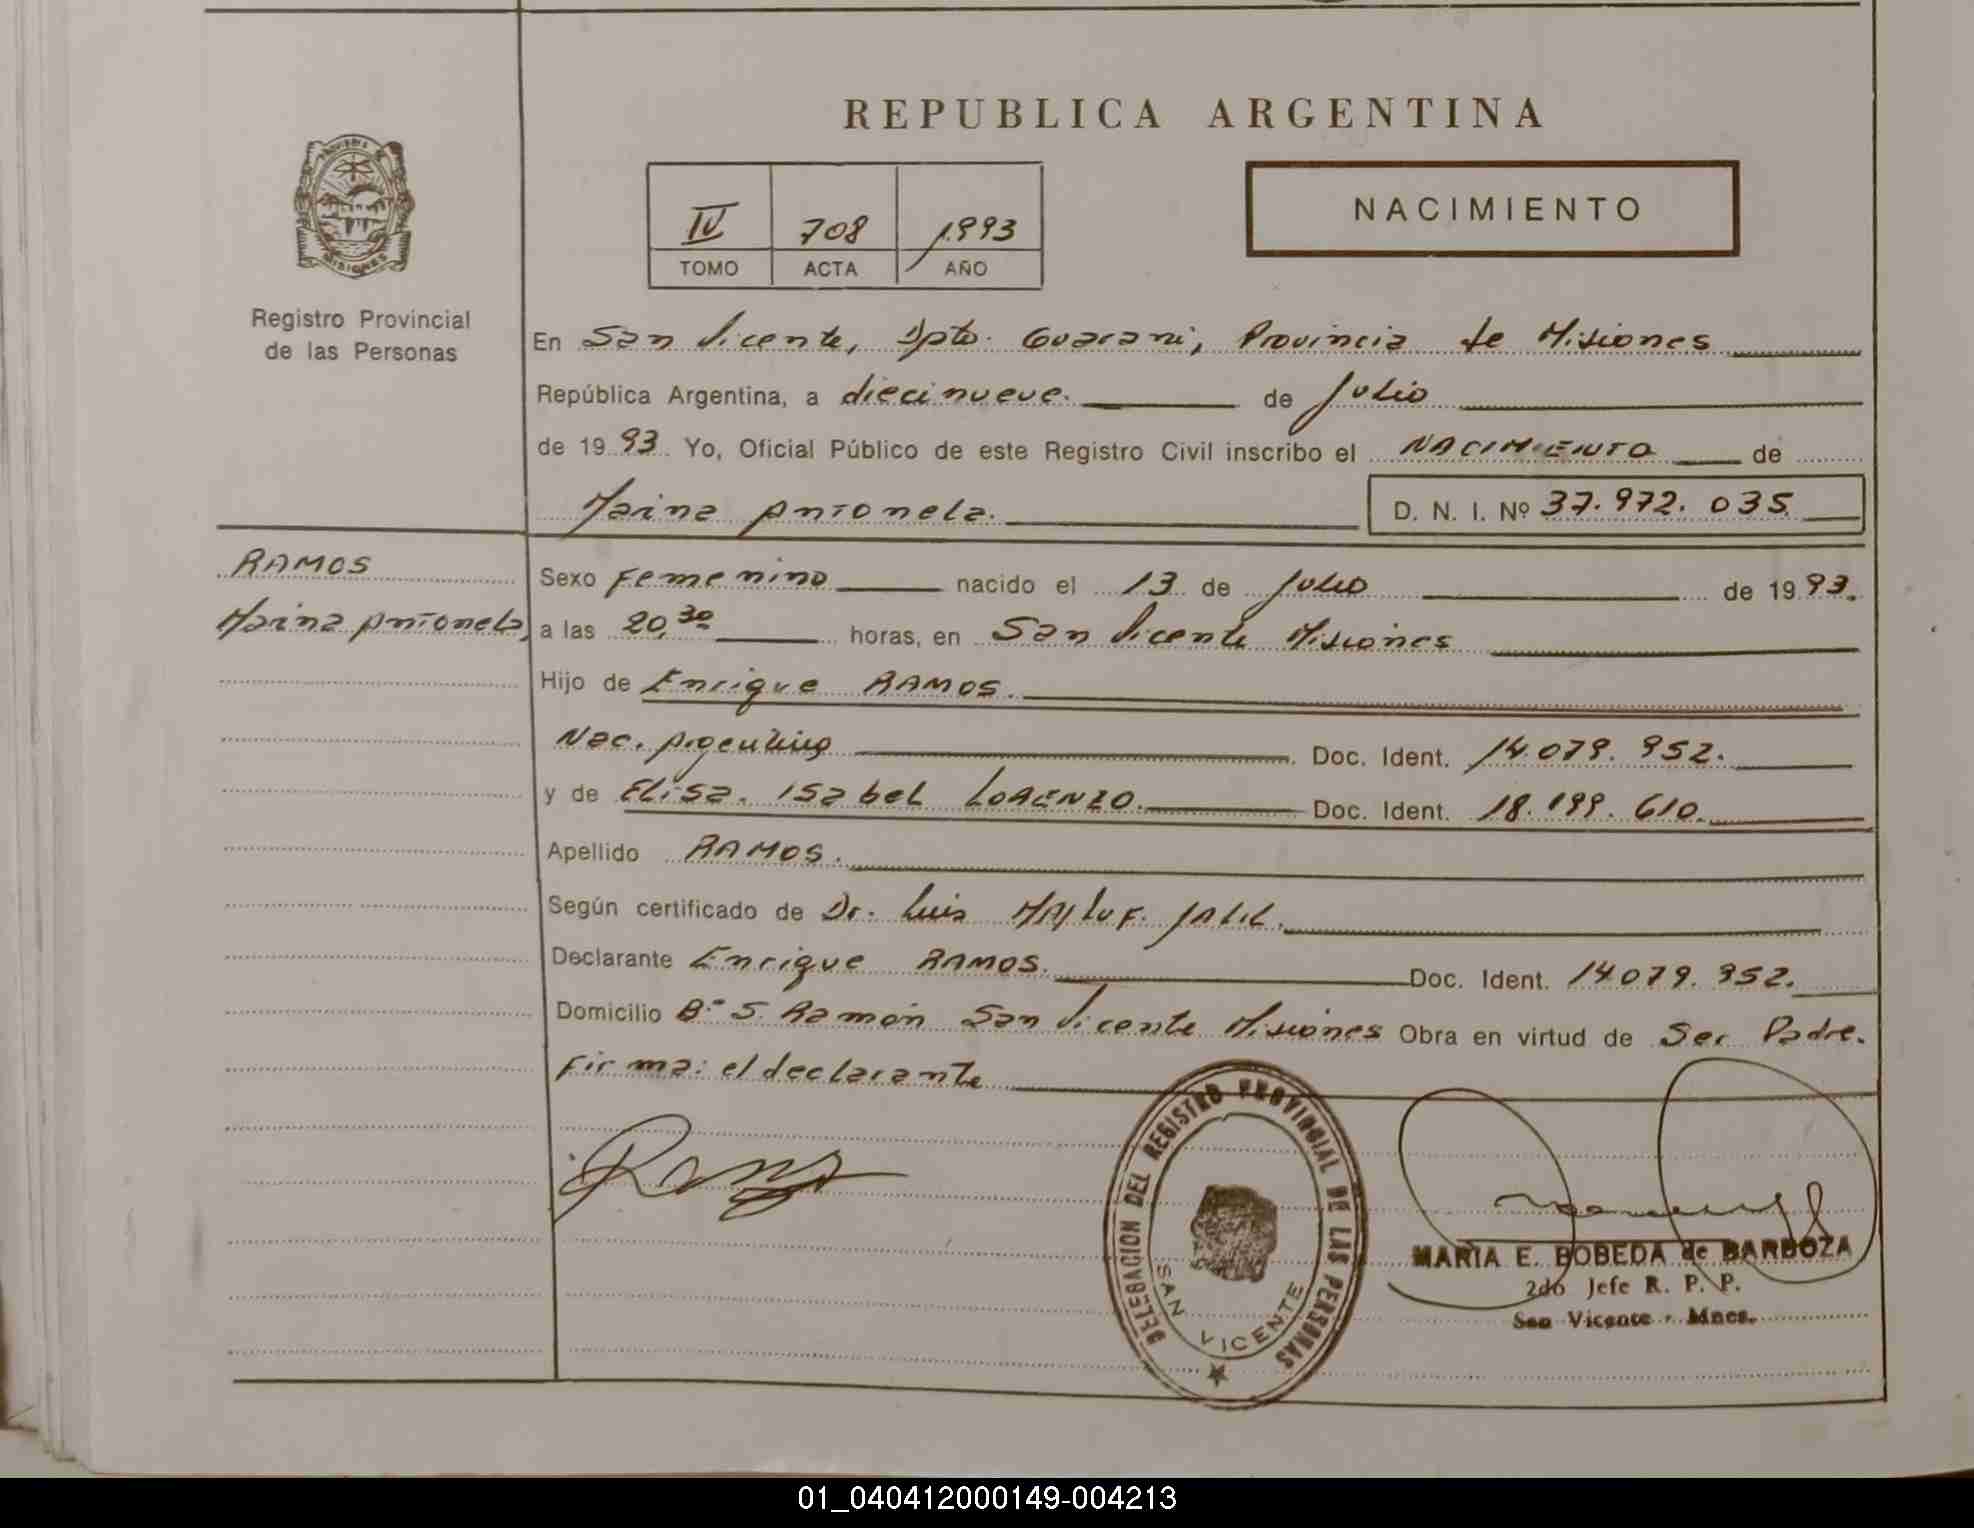 REPUBLICA ARGENTINA
PROVINCIA DE
MISIONES
Registro Provincial
de las Personas
IV 708 1993
TOMO ACTA AÑO
NACIMIENTO
En San Vicente, Dpto. Guarani, Provincia de Misiones
República Argentina, a diecinueve. de Julio
de 1993. Yo, Oficial Público de este Registro Civil inscribo el NACIMIENTO de
Marina Antonela. D. N. I. Nº 37.972.035
RAMOS
Marina Antonela
Sexo Femenino nacido el 13 de Julio de 1993.
a las 20,30 horas, en San Vicente Misiones
Hijo de Enrique RAMOS.
Nac. Argentino Doc. Ident. 14.079.952.
y de Elisa. Isabel LORENZO. Doc. Ident. 18.199.610.
Apellido RAMOS.
Según certificado de Dr. Luis MAJLUF. JALIL.
Declarante Enrique RAMOS. Doc. Ident. 14.079.952.
Domicilio Bº S. Ramón San Vicente Misiones Obra en virtud de Ser Padre.
Firma: el declarante
DELEGACION DEL REGISTRO PROVINCIAL DE LAS PERSONAS
SAN VICENTE
MARIA E. BOBEDA de BARBOZA
2do Jefe R. P. P.
San Vicente - Mnes.
01_040412000149-004213